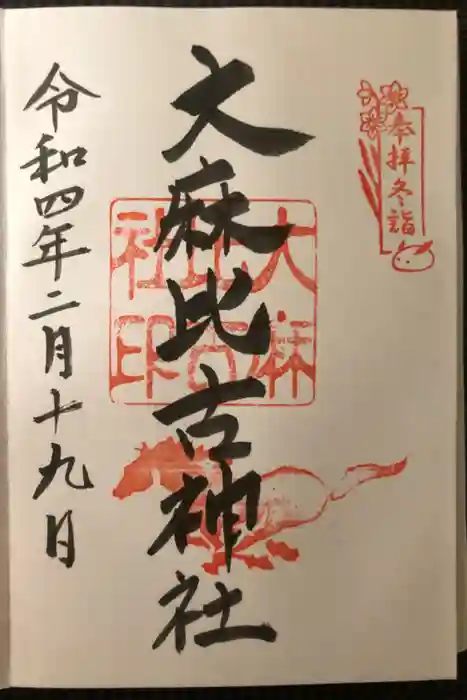 奉拝冬詣
大麻比古神社
大麻
比古
社印
令和四年二月十九日